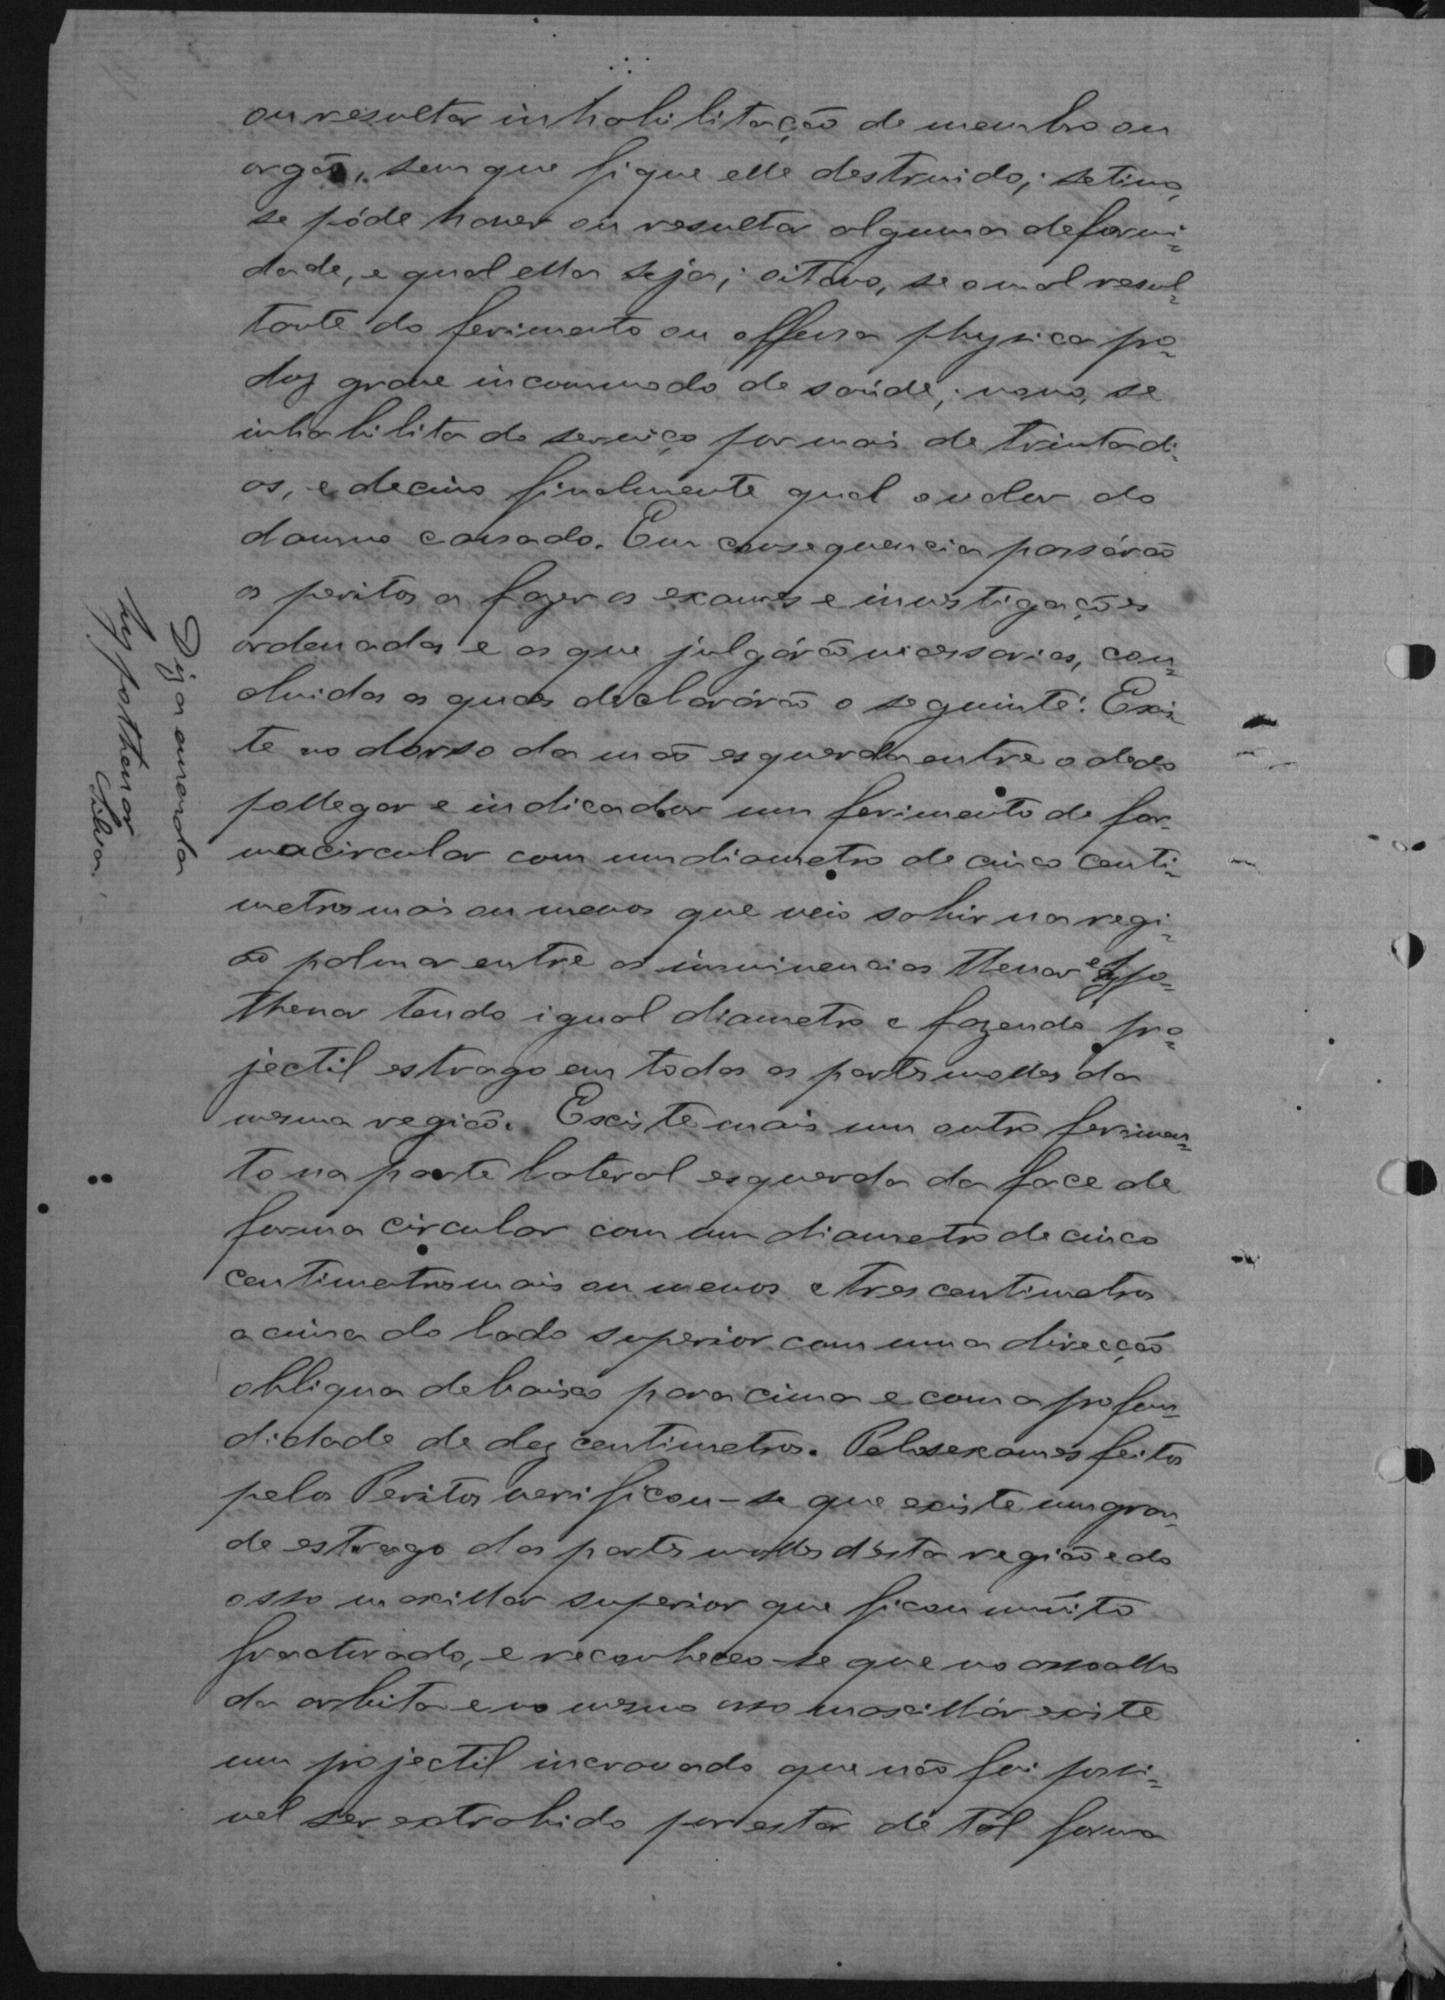 ou resultar inhabilitação de membro ou
orgão, sem que fique elle destruido; setimo,
se póde haver ou resultar alguma deformi=
dade, e qual ella seja; oitavo, se o mal resul=
tante do ferimento ou offensa physica pro=
duz grave incommodo de saúde; nono, se
inhabilita do serviço por mais de trinta di=
as, e decimo finalmente qual o valor do
damno causado. Em consequencia passárão
os peritos a fazer os exames e investigações
ordenadas e os que julgárão necessarios, con=
cluidos os quaes declarárão o seguinte: Exis=
te no dorso da mão esquerda entre o dedo
pollegar e indicador um ferimento de for=
ma circular com um diametro de cinco centi=
metros mais ou menos que veio sahir na regi=
ão palmar entre as iminencias thenar e hypo=
thenar tendo igual diametro e fazendo o pro=
jectil estrago em todas as partes molles da
mesma região. Existe mais um outro ferimen=
to na parte lateral esquerda da face de
forma circular com um diametro de cinco
centimetros mais ou menos e tres centimetros
acima do lado superior com uma direcção
obliqua de baixo para cima e com a profun=
didade de dez centimetros. Pelos exames feitos
pelos Peritos verificou-se que existe um gran=
de estrago das partes molles d'esta região e do
osso maxillar superior que ficou muito
fracturado, e reconheceo-se que no assoalho
da orbita e no mesmo osso maxillár existe
um projectil incravado que não foi possi=
vel ser extrahido por estar de tal forma
Diz a emenda
hypothenar
Silva